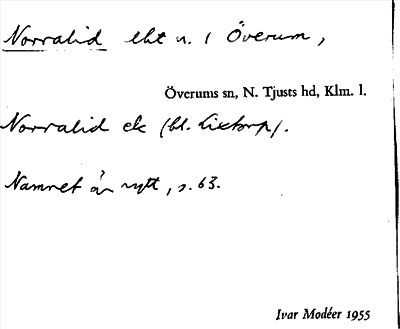 Norralid lht n. 1 Överum,
Överums sn, N. Tjusts hd, Klm. l.
Norralid ek (bl. Lixtorp).
Namnet är nytt, s. 63.
Ivar Modéer 1955